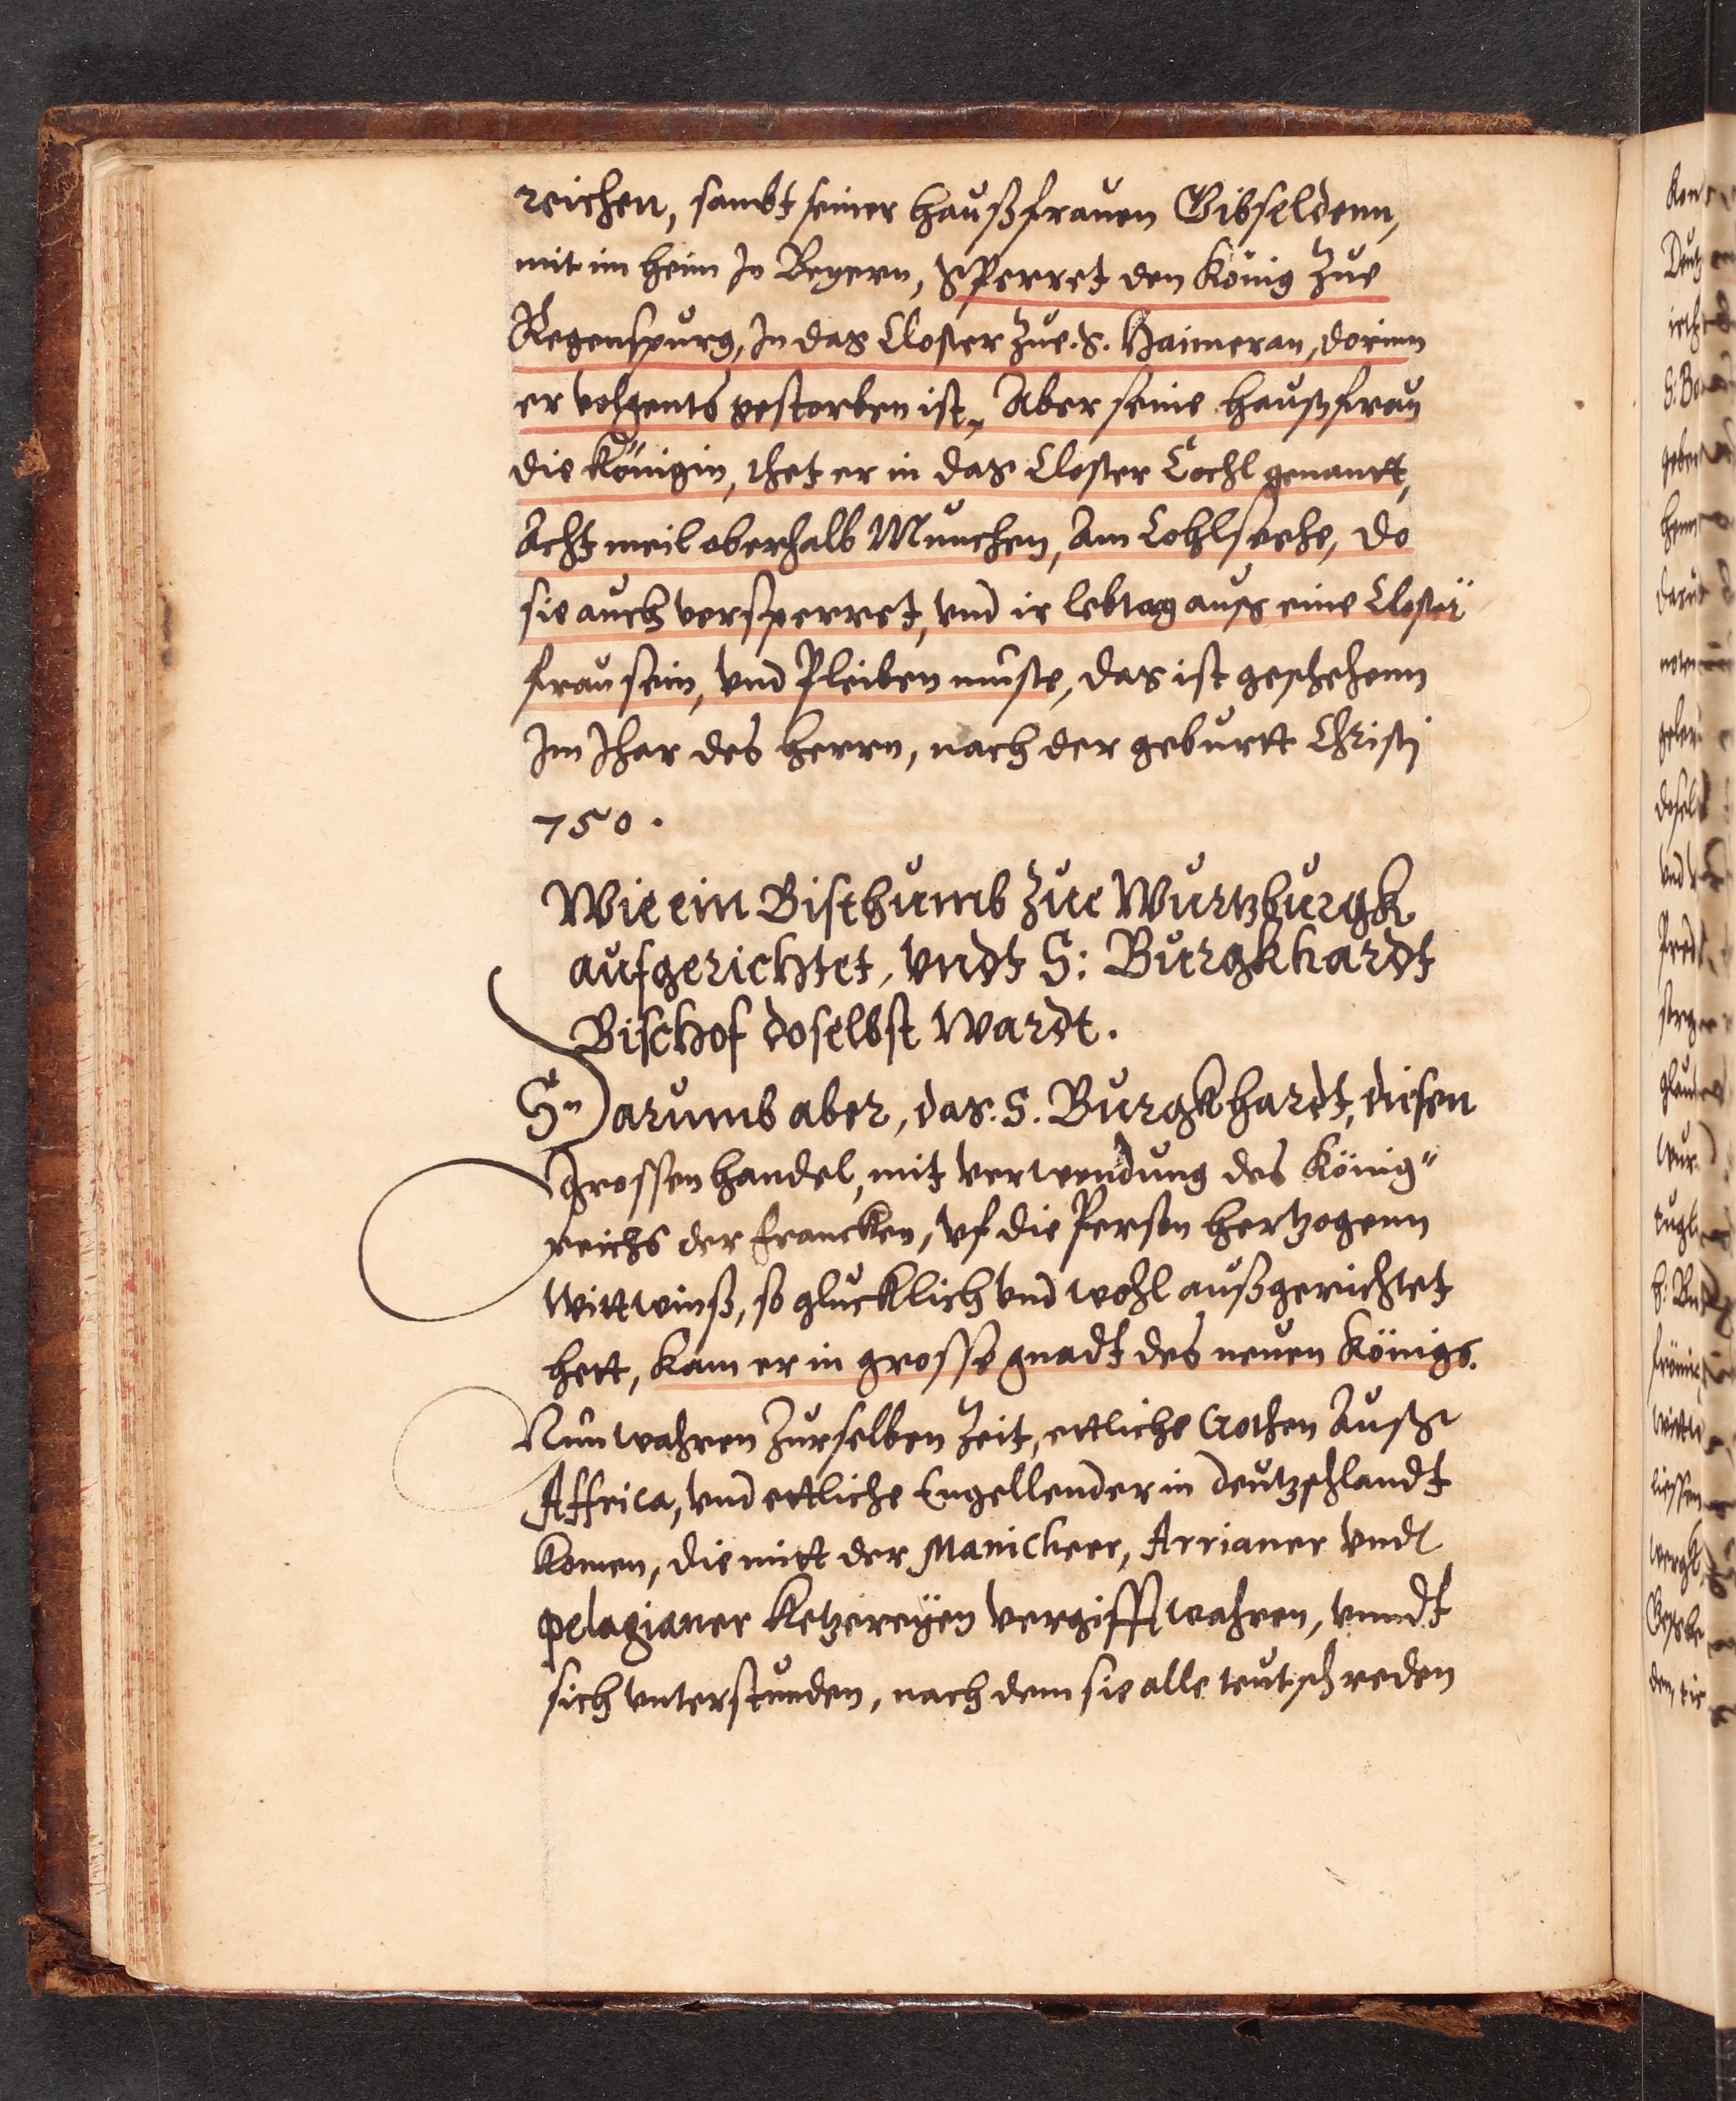 reichen, sambt seiner haußfrauen Gibseldenn,
mit im heim In Beyern, Sperret den König zue
Regenspurg, In das Closter zue. S. Haimeran, dorinn
er volgents gestorben ist, Aber seine haußfrau
die Königin, thet er in das Closter Cochl genantt,
Acht meil oberhalb München, Am Cohlseehe, do
sie auch versperret, vnd ir lebtag auss eine Closter
frau sein, vnd Pleiben muste, das ist geschehenn
Im Jhar des herrn, nach der geburtt Christj
750.
Wie ein Bisthumb zue Wurtzburgk
aufgerichtet, vndt S: Burgkhardt
Bischof doselbst wardt.
Darumb aber, das. S. Burgkhardt, diesen
grossen handel, mit verwendung des König"
reichs der Francken, vf die Person hertzogenn
Wittwinß, so glucklich vnd wohl außgerichtet
hett, kam er in grosse gnadt des neuen Königs.
Nun wahren zurselben Zeit, ettliche Gothen Auß
Affrica, vnd ettliche Engellender in deutzschlandt
komen, die mitt der Manicheer, Arrianer vnd
pelagianer Ketzereyen vergifft wahren, vnndt
sich vnterstunden, nach dem sie alle teutsch reden